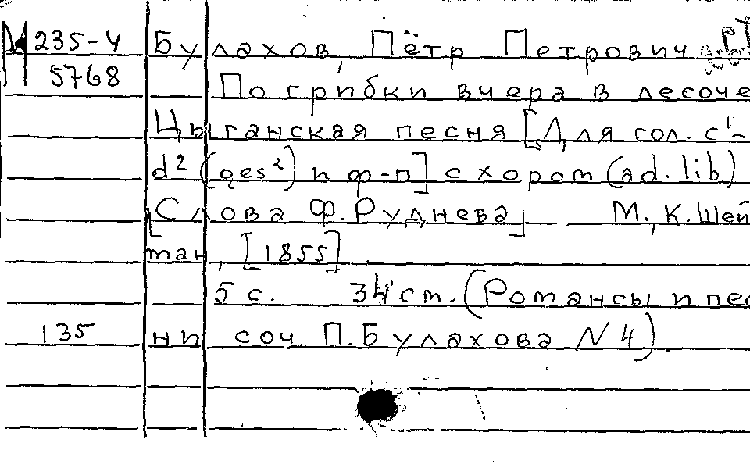 М 235-4 Булахов, Пётр Петрович
5768 По грибки вчера в лесоче
Цыганская песня [Для гол. c¹-
d² (ges²) и ф-п] с хором (ad. lib)
[Слова Ф. Руднева] М., К. Шей
ман, [1855]
5 с. 34 см. (Романсы и пес
135 ни соч П. Булахова N 4)